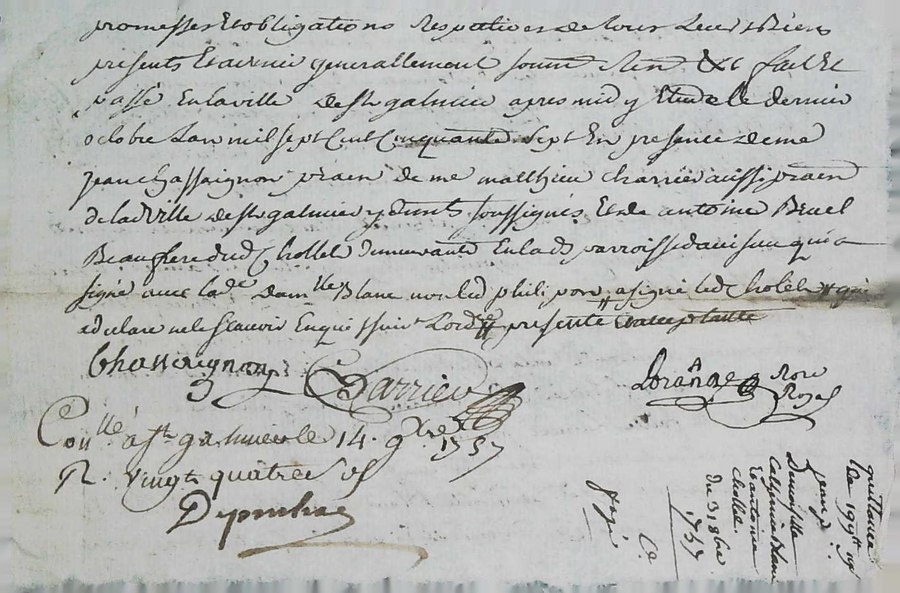 promesses et obligations respectives de tous leurs biens
presents et avenir generallement soum ren &c fait et
passé en la ville de St galmier apres midy etude le dernier
octobre l'an mil sept cent cinquante sept en presence de me
jean chassaignon praen de me matthieu charrier aussi praen
de lad ville de St galmier y étants soussignés et de antoine
Beaufrere dud chollet demeurant en lad parroisse qui a
signé avec lad dam.lle Blanc non led philipon a signé led cholet qui
a declaré ne le scavoir enquis suivt l'ordce presente acceptante
Chassaignon
Charrier
Lorange Nore Royal
Con.llé a St galmier le 14. 9bre 1757
R. vingt quatre s
guittance
De
Demoiselle
Catherine Blanc
et antoine
chollet
du 31 8bre
1757